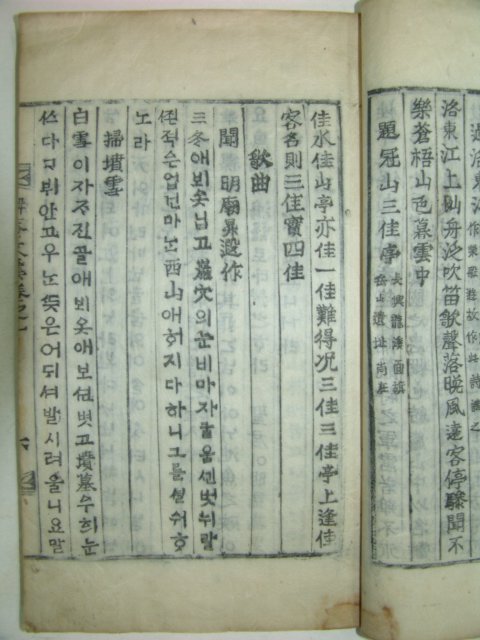 洛東江上仙舟泛吹笛歌聲落晩風遠客停驂聞不
樂蒼梧山色暮雲中
題冠山三佳亭
佳水佳山亭亦佳一佳難得况三佳三佳亭上逢佳
客名則三佳實四佳
歌曲
聞 明廟昇遐作
三冬애뵈옷닙고巖穴의눈비마자굴움센벗뉘랄
적은업던마ᄂᆞᆫ西山애ᄒᆡ지다하니그를셜워ᄒᆞ
노라
掃墳雪
白雪이자자진골애뵈옷애보션벗고墳墓우희눈
쓰다가뷔안고우노ᄯᅳᆺ은어듸셔발시려울니요말